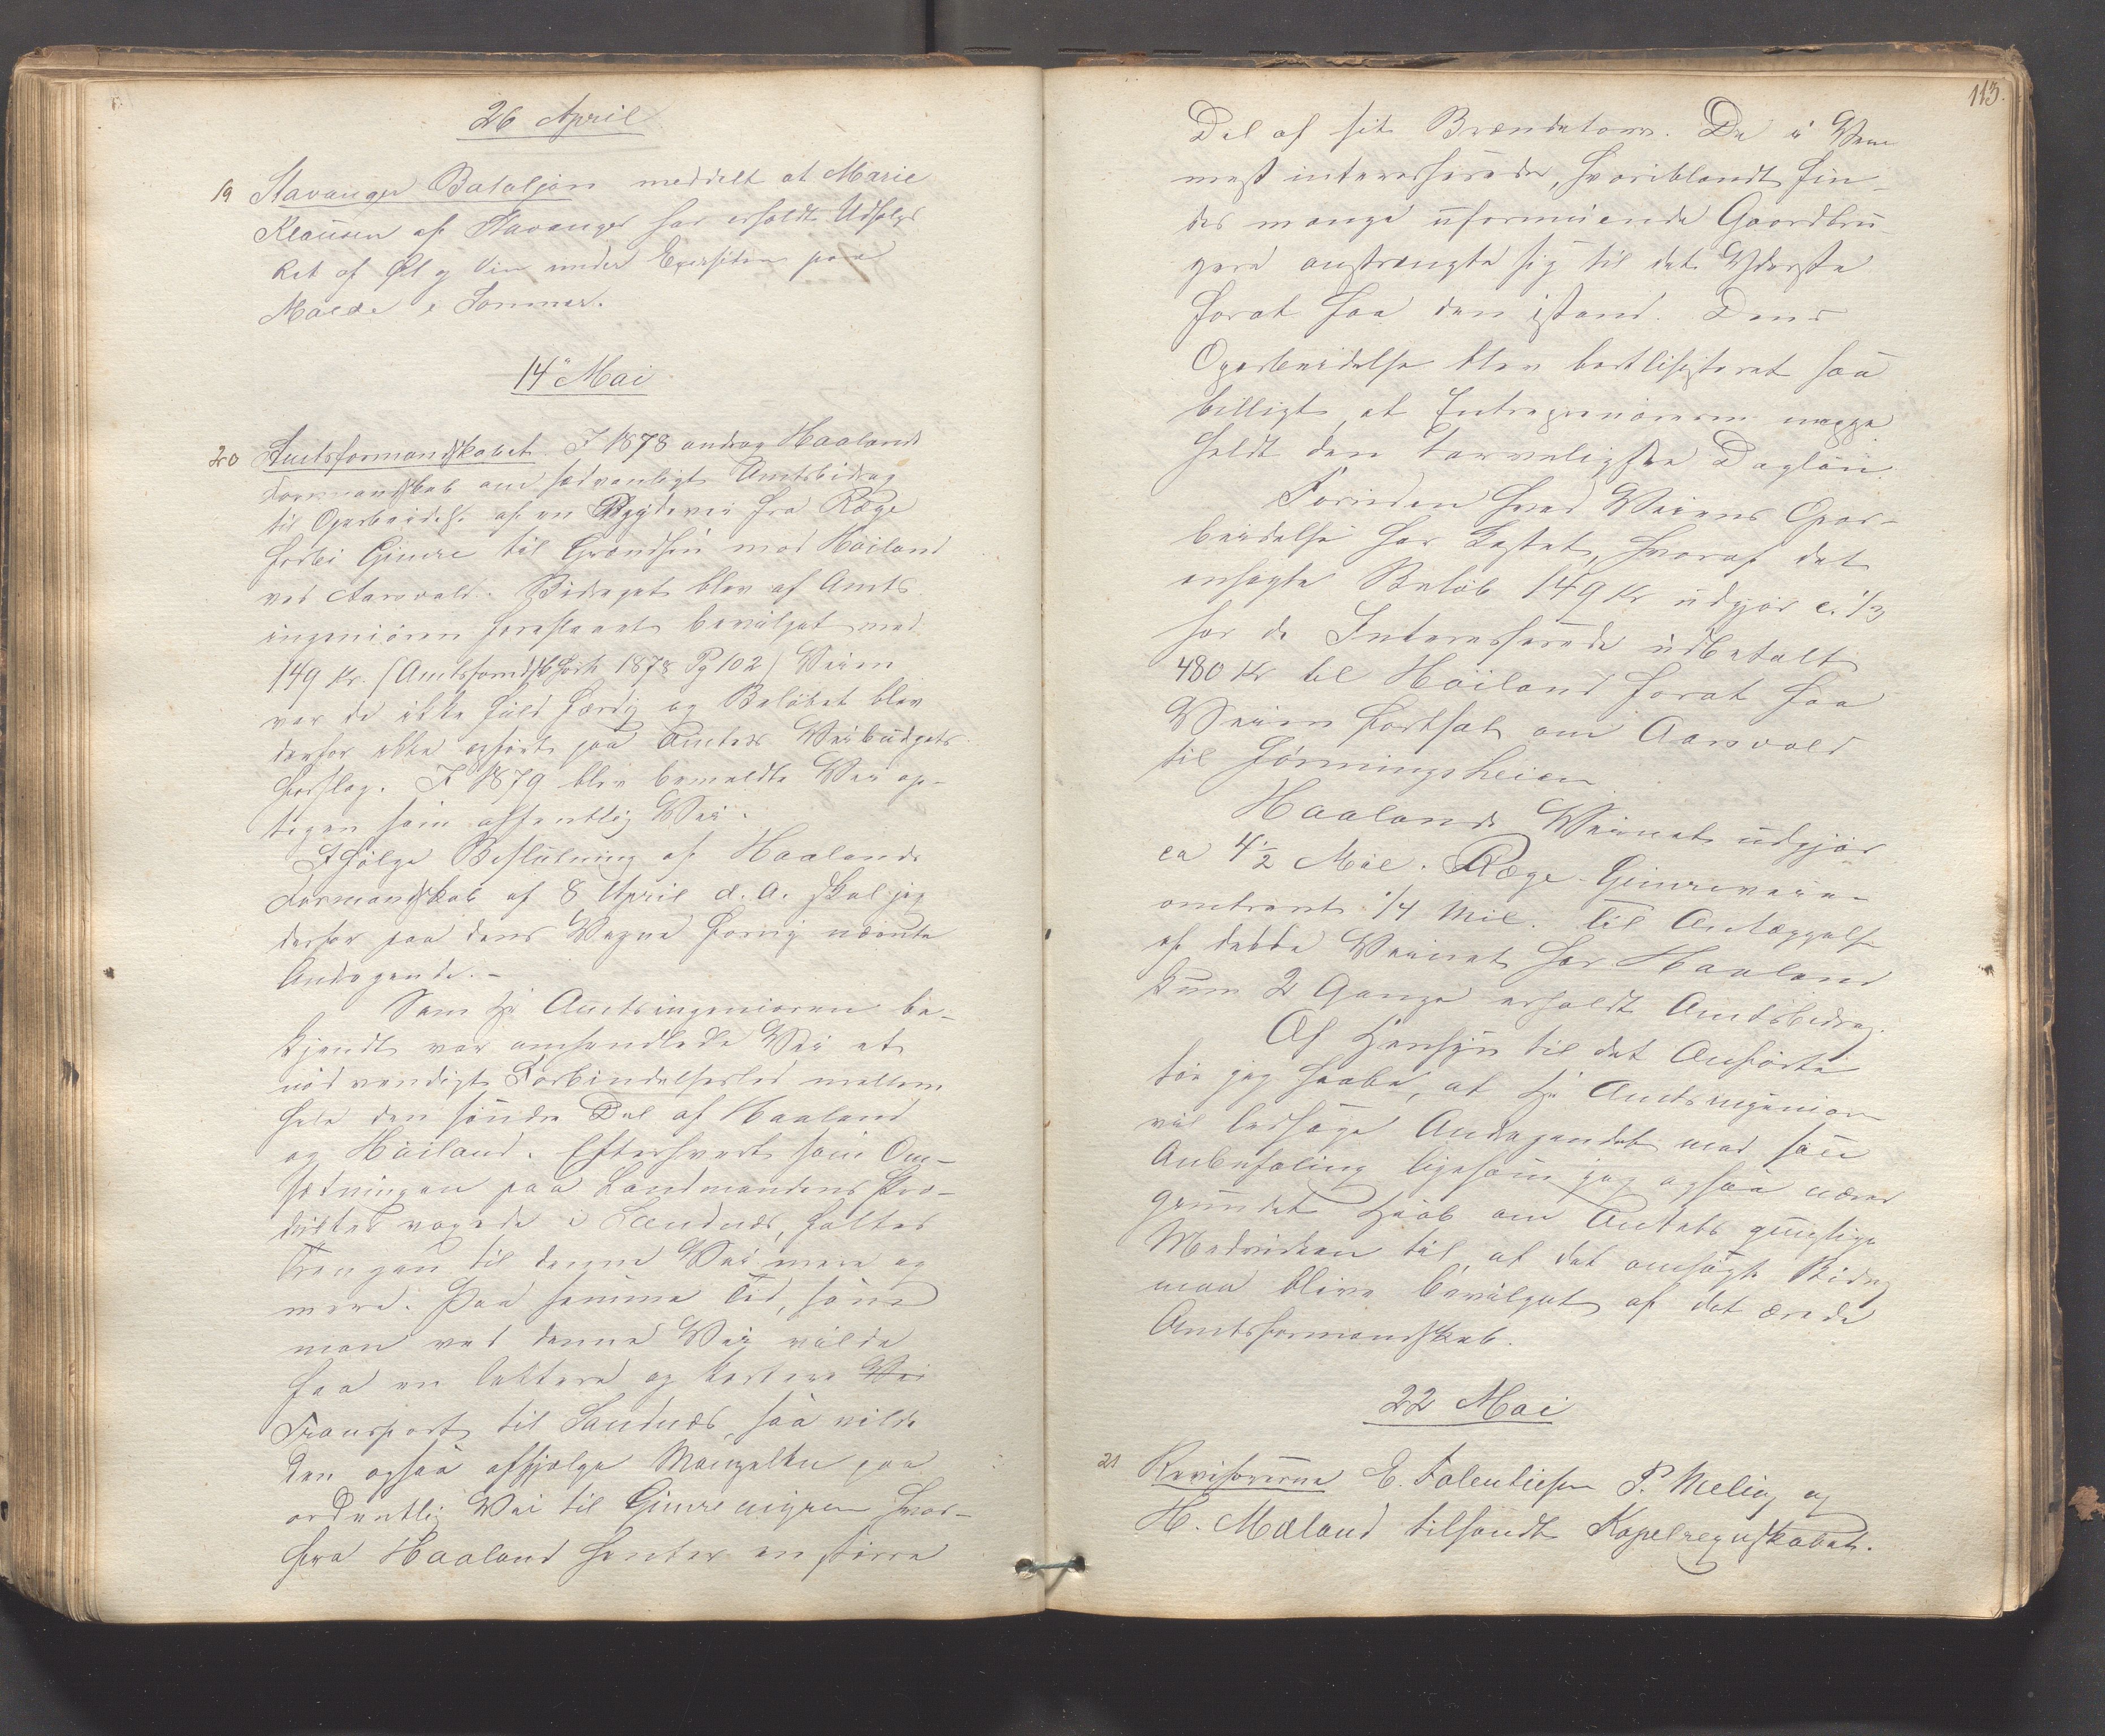 26 April
19 Stavanger Bataljon meddelt at Marie
Klausen af Stavanger har erholdt Udsalgs
Ret af Øl og Vin under Exersitien paa
Malde i Sommer.
14 Mai
20 Amtsformandskabet. I 1878 androg Haalands
Formandskab om sædvanligt Amtsbidrag
til Oparbeidelse af en Bygdevei fra Ræge
forbi Gimre til Grændsen mod Høiland
ved Aarsvold. Bidraget blev af Amts
ingeniøren foreslaaet bevilget med
149 Kr. (Amtsformdskb Forh 1878 Pg 102) Veien
var da ikke fuld færdig og Beløbet blev
derfor ikke opført paa Amtets Veibudgets
forslag. I 1879 blev bemeldte Vei op-
tagen som offentlig Vei.
Ifølge Beslutning af Haalands
Formandskab af 8 April d. A. skal jeg
derfor paa dens Vegne fornÿ nævnte
Andragende.-
Som Hr Amtsingeniøren be-
kjendt var omhandlede Vei et
nødvendigt Forbindelsesled mellem
hele den søndre Del af Haaland
og Høiland. Efterhvert som Om-
sætningen paa Landmandens Pro-
dukter voxede i Sandnæs, føltes
Trangen til denne Vei mere og
mere. Paa samme Tid, som
man ved denne Vei vilde
faa en lettere og kortere Vei
Transport til Sandnæs, saa vilde
den ogsaa afhjælpe Mangelen paa
ordentlig Vei til Gimremyren hvor-
fra Haaland henter en større
113.
Del af sit Brændetorv. De i Veien
mest interesserede, hvoriblandt fin-
des mange uformuende Gaardbru
gere anstrængte sig til det Yderste
forat faa den istand. Dens
Oparbeidelse blev bortlisiteret saa
billigt, at Entreprenørerne neppe
holdt den tarveligste Dagløn.
Foruden hvad Veiens Opar-
beidelse har kostet, hvoraf det
ansøgte Beløb 149 Kr udgjør c. 1/3
har de Interesserede udbetalt
480 Kr til Høiland forat faa
Veien fortsat om Aarsvold
til Hønningsheien
Haalands Veinet udgjør
ca 4 1/2 Mil. Ræge-Gimreveien
omtrent 1/4 Mil. Til Anlæggelse
af dette Veinet har Haaland
kun 2 Gange erholdt Amtsbidrag.
Af Hensÿn til det Anførte
tør jeg haabe, at Hr Amtsingeniør
vil ledsage Andragendet med sin
Anbefaling ligesom jeg ogsaa nærer
grundet Haab om Amtets gunstige
Medvirken til, at det ansøgte Bidrag
maa blive bevilget af det ærede
Amtsformandskab.
22 Mai
21 Revisorerne E. Folentiesen P. Meling og
H. Mæland tilsendt Kapelregnskabet.